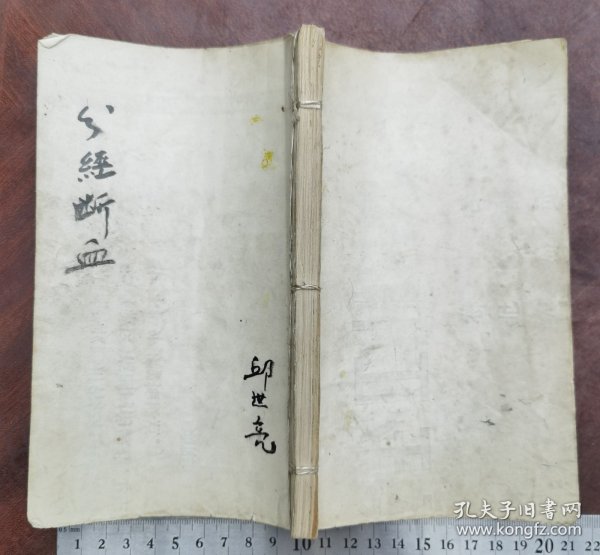 分經断血
邱世亮
孔夫子旧书网
www.kongfz.com
0.5mm
1 2 3 4 5 6 7 8 9 10 11 12 13 14 15 16 17 18 19 20 21 22